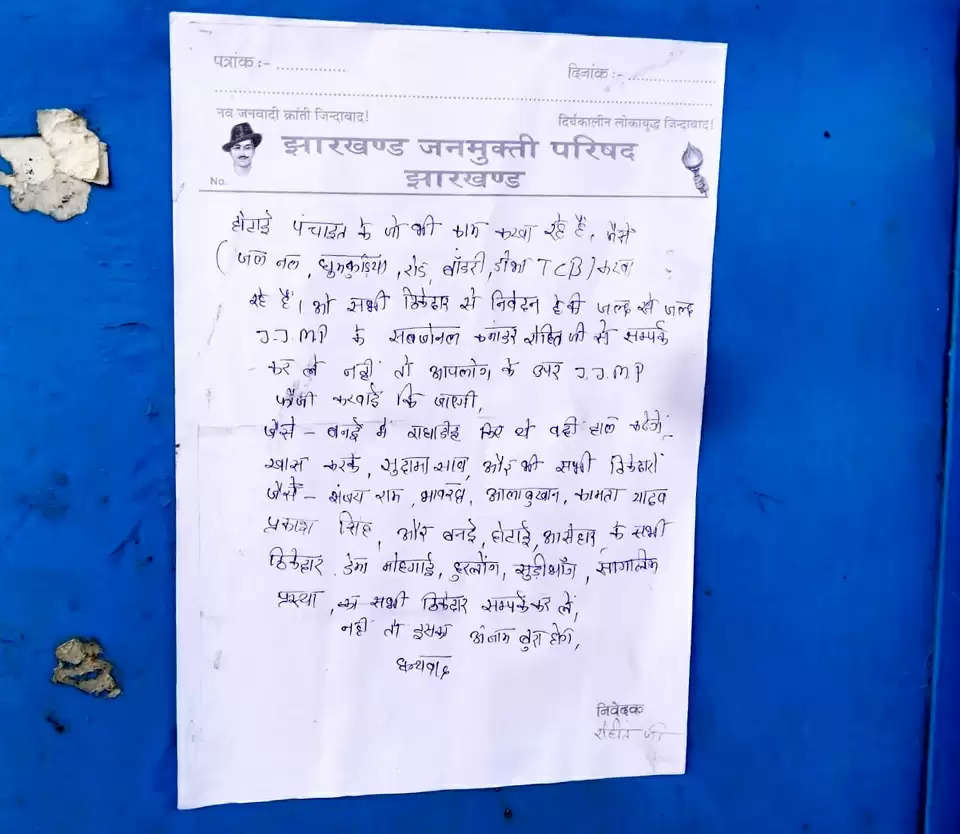 पत्रांक :- ..............
दिनांक :- ........................
नव जनवादी क्रांती जिन्दाबाद!
दिर्घकालीन लोकायुद्ध जिन्दाबाद!
झारखण्ड जनमुक्ती परिषद
झारखण्ड
No.
होटाई पंचाइत के जो भी काम करवा रहे हैं, जैसे
(जल नल, धुमकुड़िया, रोड, बॉडरी, डोभा TCB) करवा
रहे हैं। ओ सभी ठिकेदार से निवेदन है की जल्द से जल्द
J.J.M.P के सबजोनल कमांडर रोहित जी से सम्पर्क
कर ले नहीं तो आपलोग के उपर J.J.M.P
फौजी करवाई कि जाएगी,
जैसे - बनई में राधाडीह किए थे वही हाल करेगें,
खास करके, सुदामा साव, और भी सभी ठिकेदारों
जैसे - संजय राम, कामता यादव
प्रकाश सिंह, और बनई, होटाई, आसेहार, के सभी
ठिकेदार डेमा मोहगाई, हुरलौंग, सुड़ीभाँग,
का सभी ठिकेदार सम्पर्क कर लें,
नहीं तो इसका अंजाम बुरा होगे,
धन्यवाद
निवेदक
रोहीत जी